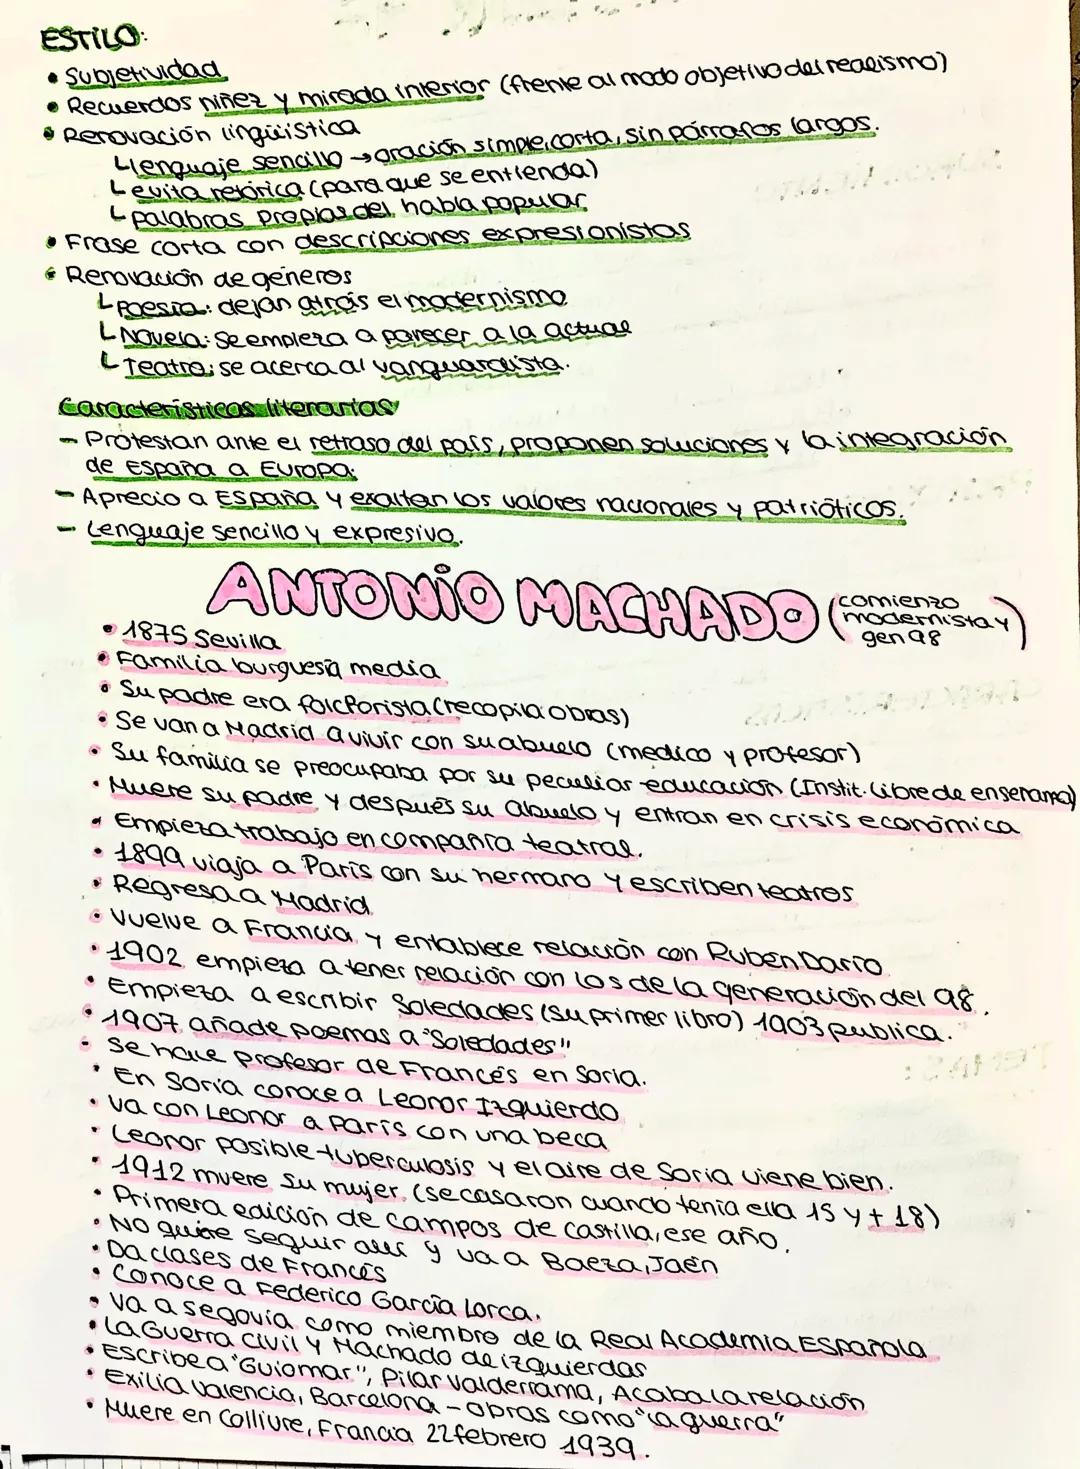 ESTILO:
• Subjetividad
• Recuerdos niñez y mirada interior (frente al modo objetivo del realismo)
• Renovación lingüística
↳ lenguaje sencillo → oración simple, corta, sin párrafos largos.
↳ evita retórica (para que se entienda)
↳ palabras propias del habla popular
• Frase corta con descripciones expresionistas
• Renovación de géneros
↳ Poesía: dejan atrás el modernismo
↳ Novela: Se empieza a parecer a la actual
↳ Teatro: se acerca al vanguardista.
Características literarias
- Protestan ante el retraso del país, proponen soluciones y la integración
de España a Europa.
- Aprecio a España y exaltan los valores nacionales y patrióticos.
- Lenguaje sencillo y expresivo.
ANTONIO MACHADO (comienzo
modernista y
gen 98)
• 1875 Sevilla
• Familia burguesía media
• Su padre era folclorista (recopila obras)
• Se van a Madrid a vivir con su abuelo (medico y profesor)
• Su familia se preocupaba por su peculiar educación (Instit. Libre de enseñanza)
• Muere su padre y después su abuelo y entran en crisis económica
• Empieza trabajo en compañía teatral.
• 1899 viaja a París con su hermano y escriben teatros
• Regresa a Madrid
• Vuelve a Francia y entablece relación con Rubén Darío
• 1902 empieza a tener relación con los de la generación del 98.
• Empieza a escribir Soledades (su primer libro) 1903 publica.
• 1907 añade poemas a "Soledades"
• Se hace profesor de Francés en Soria.
• En Soria conoce a Leonor Izquierdo
• Va con Leonor a París con una beca
• Leonor posible tuberculosis y el aire de Soria viene bien.
• 1912 muere su mujer. (se casaron cuando tenía ella 15 y + 18)
• Primera edición de campos de castilla, ese año.
• No quiere seguir allí y va a Baeza, Jaén
• Da clases de Francés
• Conoce a Federico García Lorca.
• Va a Segovia como miembro de la Real Academia Española
• La Guerra Civil y Machado de izquierdas
• Escribe a "Guiomar", Pilar Valderrama, Acaba la relación
• Exilia Valencia, Barcelona - obras como "la guerra"
• Muere en Colliure, Francia 22 febrero 1939.